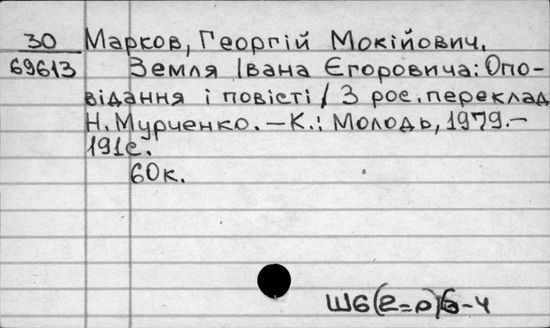 30 Марков, Георгій Мокійович.
69613 Земля Івана Єгоровича: Опо-
відання і повісті / З рос. переклад
Н. Мурченко. — К.: Молодь, 1979.—
191с.
60к.